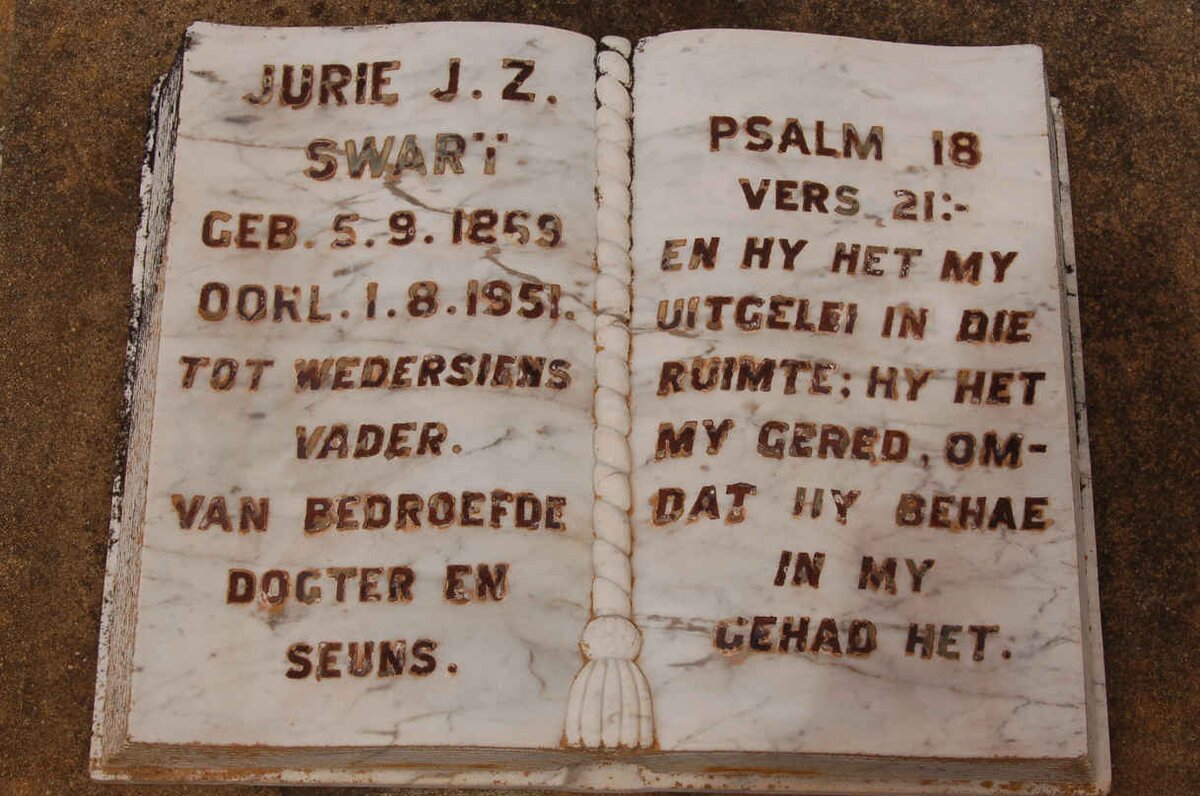 JURIE J. Z.
SWART
GEB. 5.9. 1869
OORL. 1.8.1951.
TOT WEDERSIENS
VADER.
VAN BEDROEFDE
DOGTER EN
SEUNS.
PSALM 18
VERS 21:-
EN HY HET MY
UITGELEI IN DIE
RUIMTE; HY HET
MY GERED, OM-
DAT HY BEHAE
IN MY
GEHAD HET.